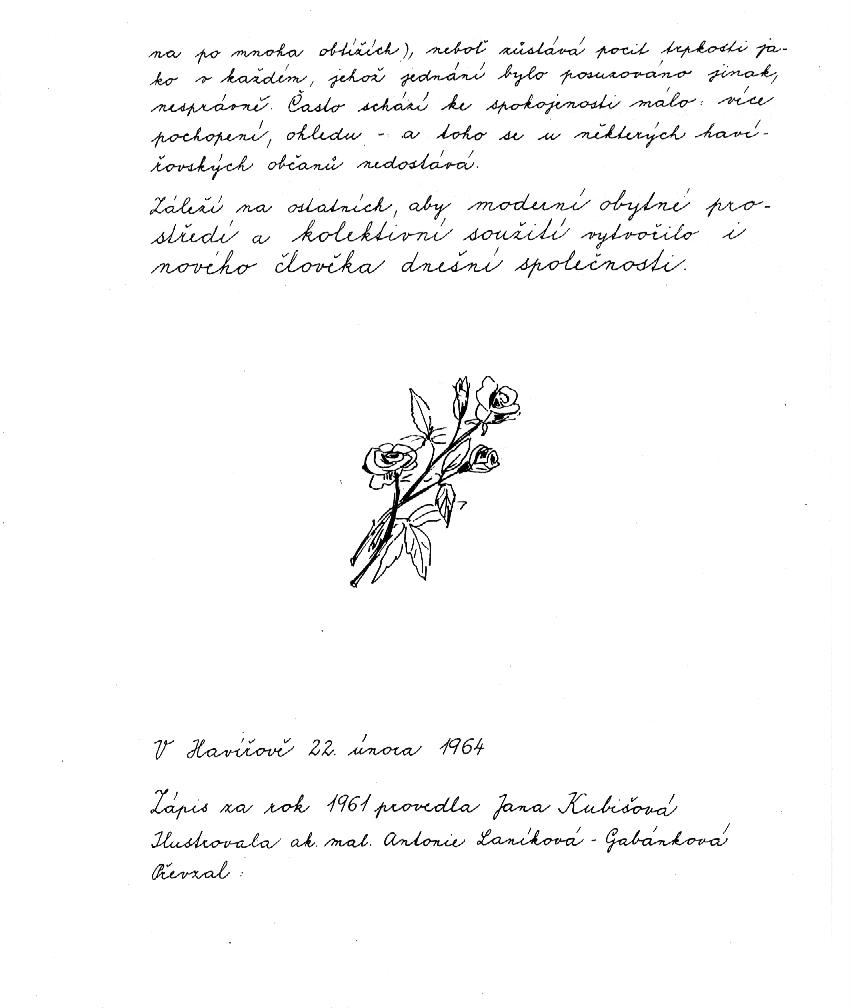 na po mnoha obtížích), neboť zůstává pocit trpkosti ja-
ko v každém, jehož jednání bylo posuzováno jinak,
nesprávně. Často schází ke spokojenosti málo: více
pochopení, ohledu - a toho se u některých haví-
řovských občanů nedostává.
Záleží na ostatních, aby moderní obytné pro-
středí a kolektivní soužití vytvořilo i
nového člověka dnešní společnosti.
V Havířově 22. února 1964
Zápis za rok 1961 provedla Jana Kubišová
Ilustrovala ak. mal. Antonie Laníková - Gabánková
Převzal :